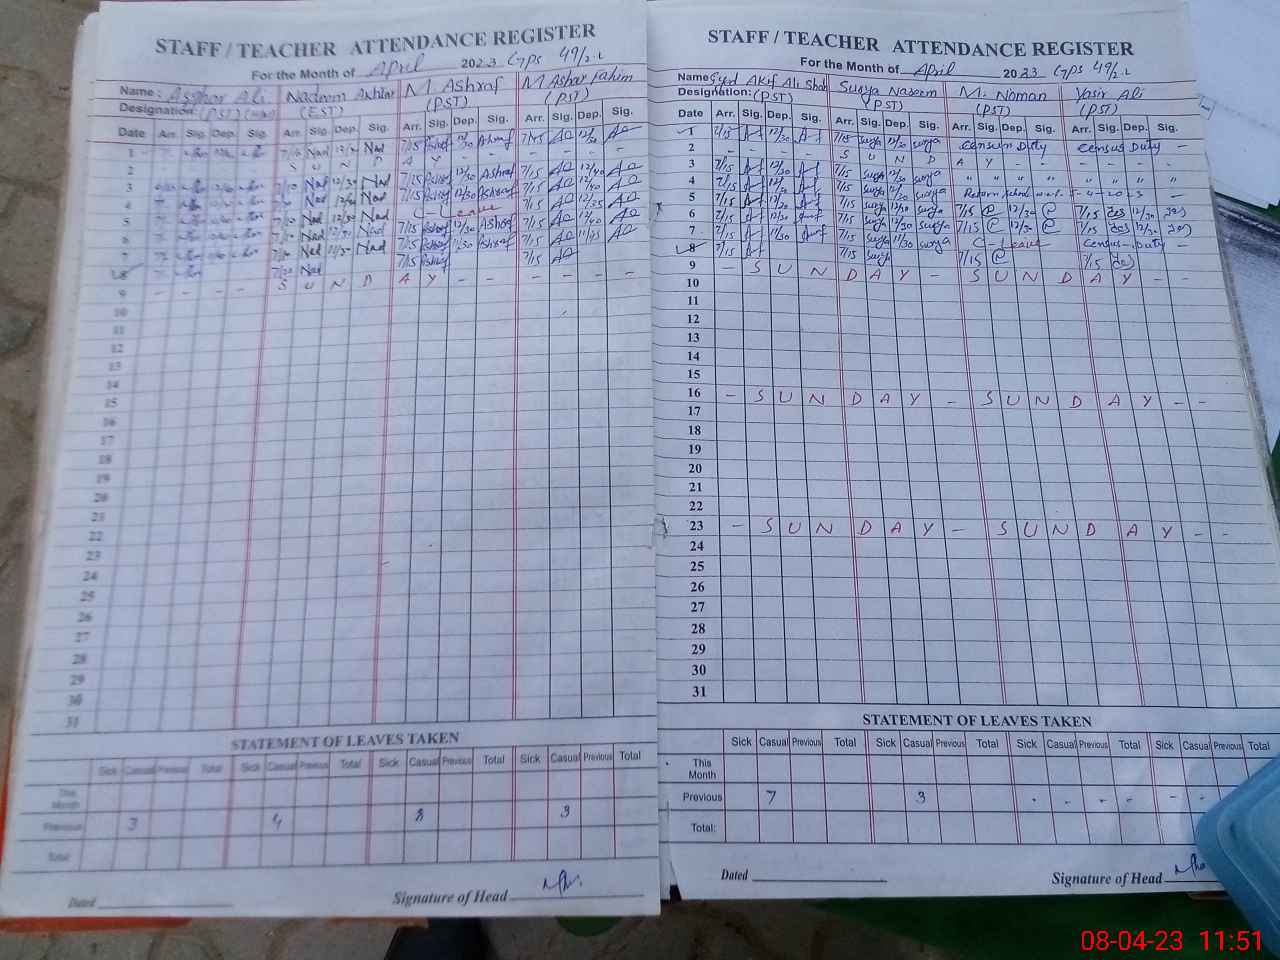 STAFF / TEACHER ATTENDANCE REGISTER
For the Month of April 2023 Gps 49/2.L
Name: Asghar Ali Nadeem Akhtar M. Ashraf M Ashar Fahim
Designation: (PST) (EST) (PST) (PST)
Date Arr. Sig. Dep. Sig. Arr. Sig. Dep. Sig. Arr. Sig. Dep. Sig. Arr. Sig. Dep. Sig.
1 Nad 12/30 Nad 7/15 Ashraf 12/30 Ashraf 7/15 12/30
2 - - - - S U N D A Y - - - - - -
3 7/20 Nad 12/30 Nad 7/15 Ashraf 12/30 Ashraf 7/15 12/40
4 Nad 12/30 Nad 7/15 Ashraf 12/30 Ashraf 7/15 12/40
5 7/20 Nad 12/30 Nad C - Leave 7/15 12/35
6 7/20 Nad 12/30 Nad 7/15 Ashraf 12/30 Ashraf 7/15 12/40
7 7/20 Nad 11/30 Nad 7/15 Ashraf 11/30 Ashraf 7/15 11/45
8 7/20 Nad 7/15 Ashraf 7/15
9 - - - - S U N D A Y - - - - - -
10
11
12
13
14
15
16
17
18
19
20
21
22
23
24
25
26
27
28
29
30
31
STATEMENT OF LEAVES TAKEN
Sick Casual Previous Total Sick Casual Previous Total Sick Casual Previous Total Sick Casual Previous Total
This Month
Previous 3 4 8 3
Total
Dated
Signature of Head
STAFF / TEACHER ATTENDANCE REGISTER
For the Month of April 2023 Gps 49/2.L
Name: Syed Akif Ali Shah Surya Naseem M. Noman Yasir Ali
Designation: (PST) (PST) (PST) (PST)
Date Arr. Sig. Dep. Sig. Arr. Sig. Dep. Sig. Arr. Sig. Dep. Sig. Arr. Sig. Dep. Sig.
1 7/15 12/30 7/15 surya 12/30 surya census Duty census Duty -
2 - - - - S U N D A Y - - - - - -
3 7/15 12/30 7/15 surya 12/30 surya " " " " " " " "
4 7/15 12/30 7/15 surya 12/30 surya Return school w.e.f. 5-4-2023
5 7/15 12/30 7/15 surya 12/30 surya 7/15 12/30 7/15 12/30
6 7/15 12/30 7/15 surya 12/30 surya 7/15 12/30 7/15 12/30
7 7/15 11/30 7/15 surya 11/30 surya C - Leave census - Duty -
8 7/15 7/15 surya 7/15 7/15
9 - S U N D A Y - S U N D A Y - -
10
11
12
13
14
15
16 - S U N D A Y - S U N D A Y - -
17
18
19
20
21
22
23 - S U N D A Y - S U N D A Y - -
24
25
26
27
28
29
30
31
STATEMENT OF LEAVES TAKEN
Sick Casual Previous Total Sick Casual Previous Total Sick Casual Previous Total Sick Casual Previous Total
This Month
Previous 7 3 - - - - - -
Total:
Dated
Signature of Head
08-04-23 11:51